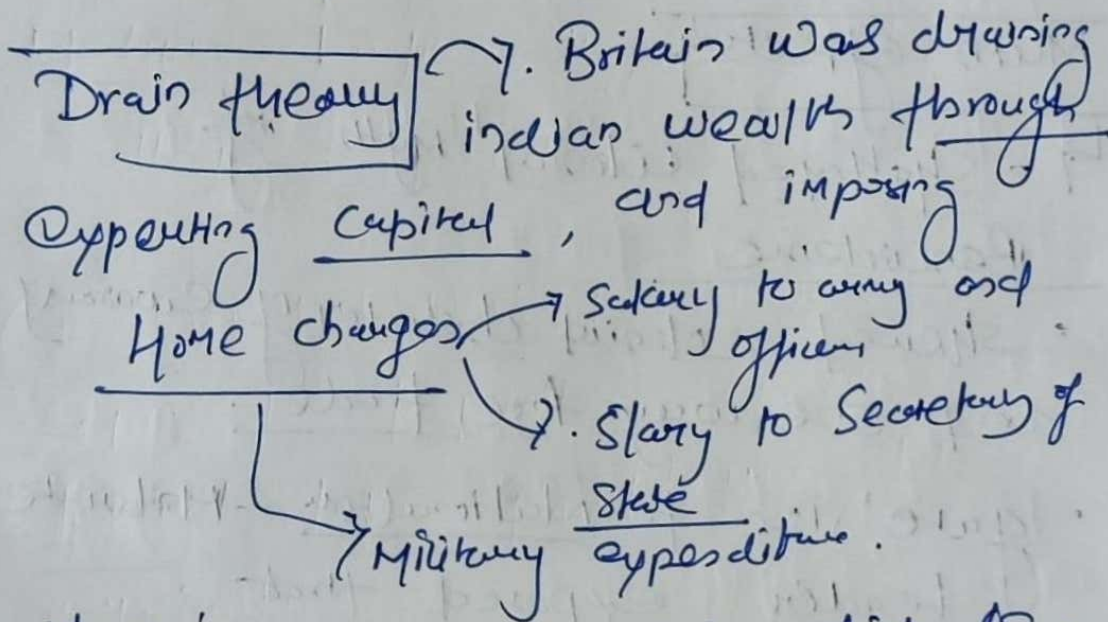 Drain theory → . Britain was draining
indian wealth through
exporting capital, and imposing
Home charges → Salary to army and
officers
→ . Slary to Secretary of
State
→ Military expenditure.